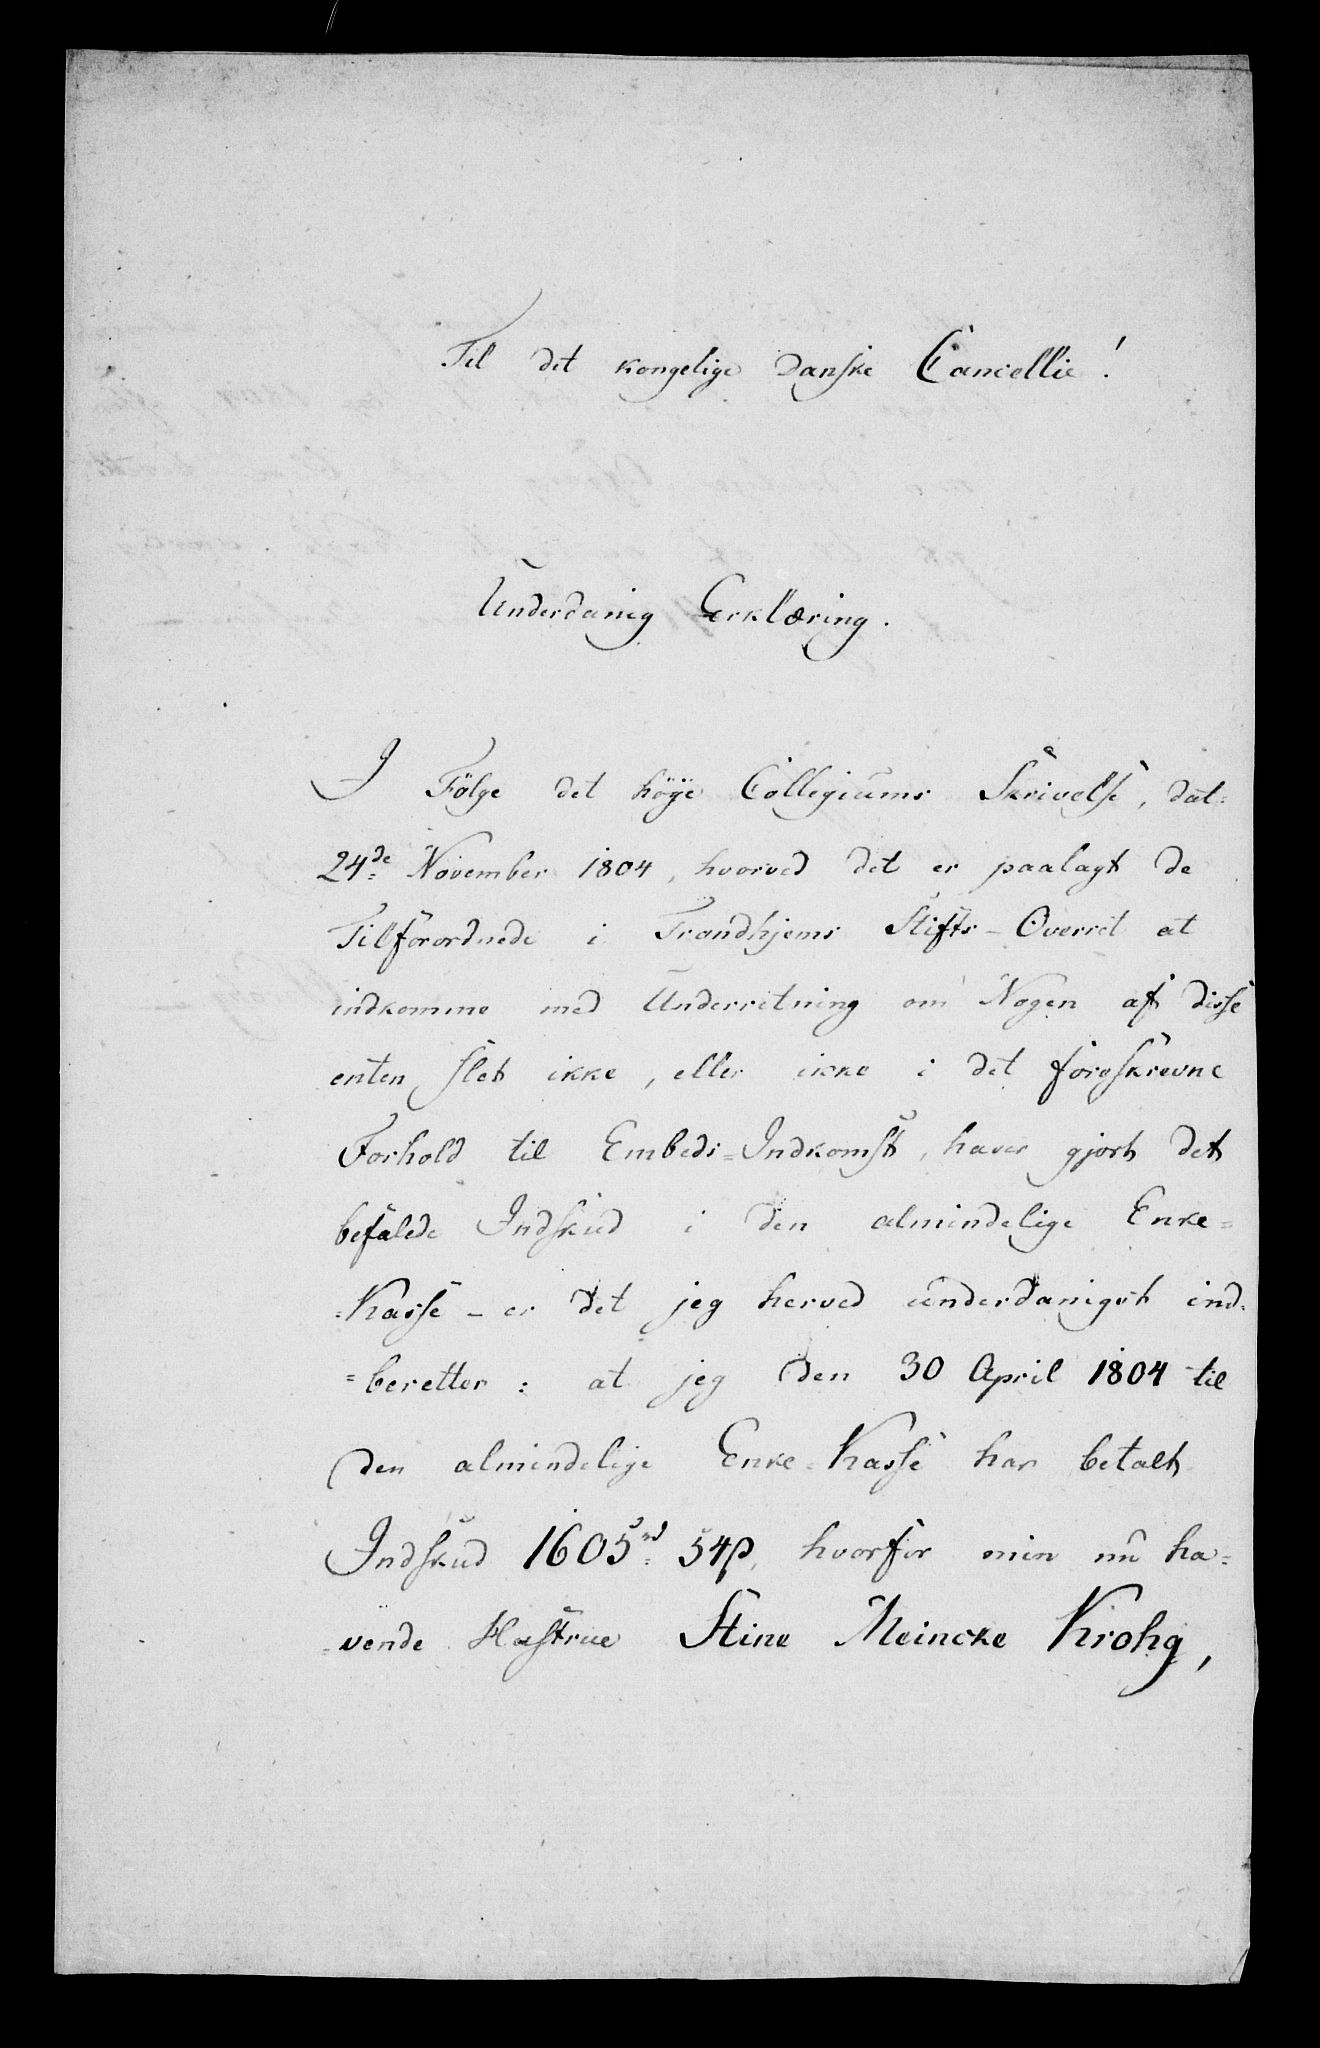 Til det kongelige Danske Cancellie!
Underdanig Erklæring.
I Følge det høye Collegiums Skrivelse, dat:
24de November 1804, hvorved det er paalagt de
Tilforordnede i Trondhjems Stifts-Overret at
indkomme med Underretning om Nogen af disse
enten slet ikke, eller ikke i det foreskrevne
Forhold til Embeds=Indkomst, haver gjort det
befalede Indskud i den almindelige Enke=
=Kasse – er det jeg herved underdanigst ind=
=beretter: at jeg den 30 April 1804 til
den almindelige Enke=Kasse har betalt
Indskud 1605rd 54ß, hvorfor min nu ha=
=vende Hustrue Stine Meincke Krohg,